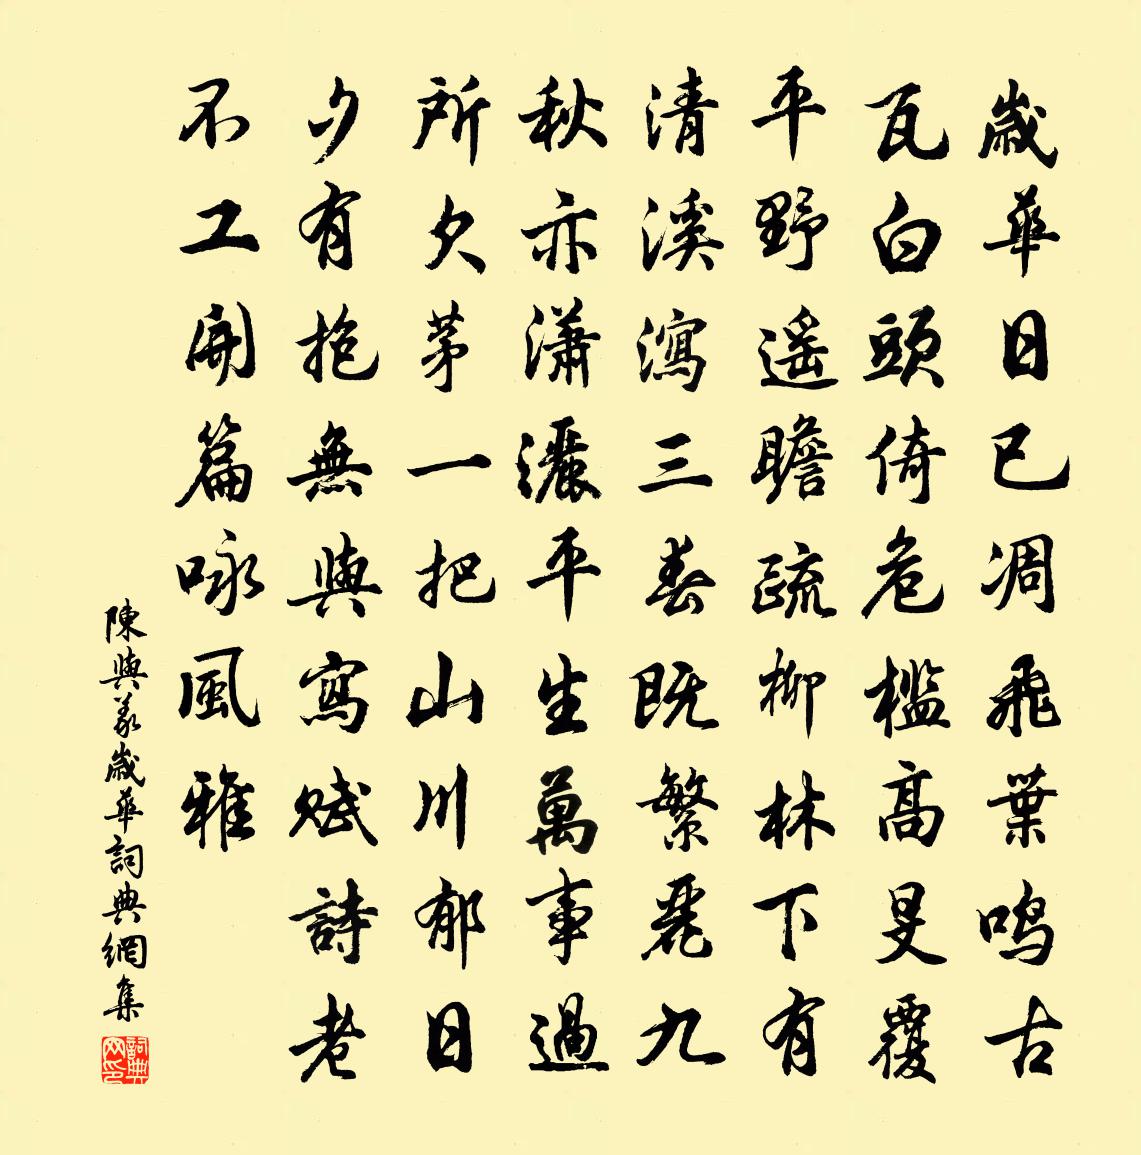 歲華日已凋飛葉鳴古
瓦白頭倚危檻高旻覆
平野遥瞻疏柳林下有
清溪瀉三春既繁麗九
秋亦瀟灑平生萬事過
所欠茅一把山川郁日
夕有抱無與寫賦詩老
不工開篇咏風雅
陳與義歲華詞典網集
詞典网印